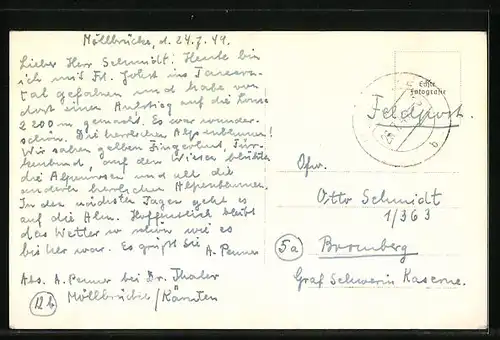 Möllbrücke, d. 24.7.44.
Lieber Herr Schmidt! Heute bin
ich mit Frl. Jobst ins
tal gefahren und habe von
dort einen Aufstieg auf die
2200 m gemacht. Es war wunder-
schön. Die herrlichen Alpenblumen!
Wir sahen gelben Fingerhut, Tür-
kenbund, auf den Wiesen blühten
die Alpenrosen und all die
anderen herrlichen Alpenblumen.
In den nächsten Tagen geht es
auf die Alm. Hoffentlich bleibt
das Wetter so schön wie es
bisher war. Es grüßt Sie
A. Penner
Abs. A. Penner bei Dr. Thaler
Möllbrücke/Kärnten
12b
Echte
Fotografie
Feldpost.
b
Ofw.
Otto Schmidt
1/363
5a
Bromberg
Graf Schwerin Kaserne.